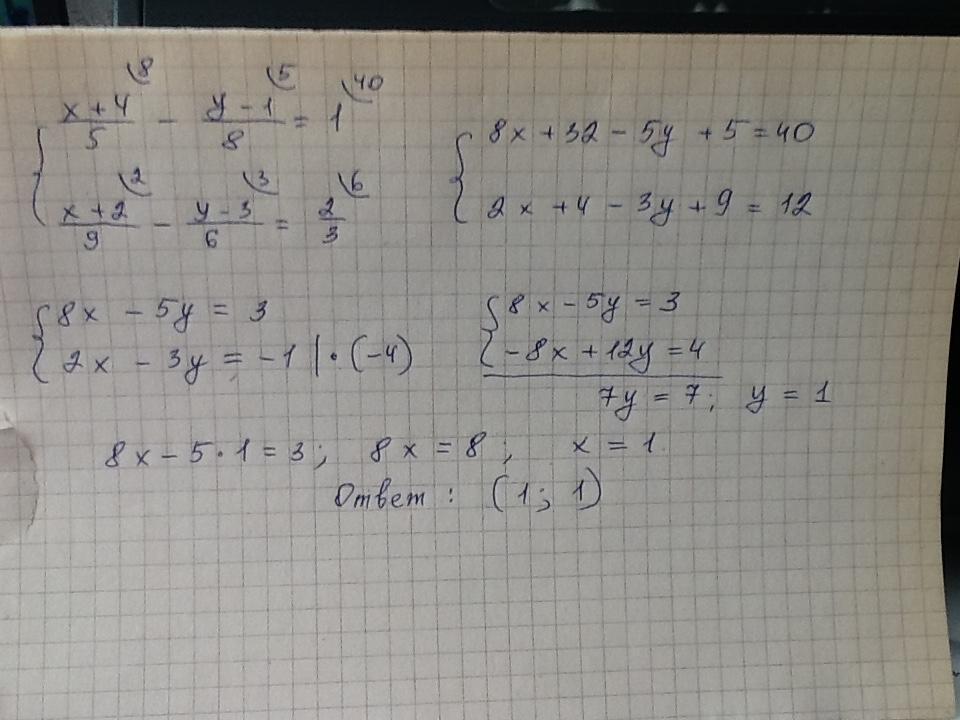 { (x + 4)/5 \8 − (y − 1)/8 \5 = 1 \40
(x + 2)/9 \2 − (y − 3)/6 \3 = 2/3 \6
{ 8x + 32 − 5y + 5 = 40
2x + 4 − 3y + 9 = 12
{ 8x − 5y = 3
2x − 3y = −1 | · (−4)
{ 8x − 5y = 3
−8x + 12y = 4
7y = 7; y = 1
8x − 5 · 1 = 3; 8x = 8; x = 1.
Ответ : (1; 1)